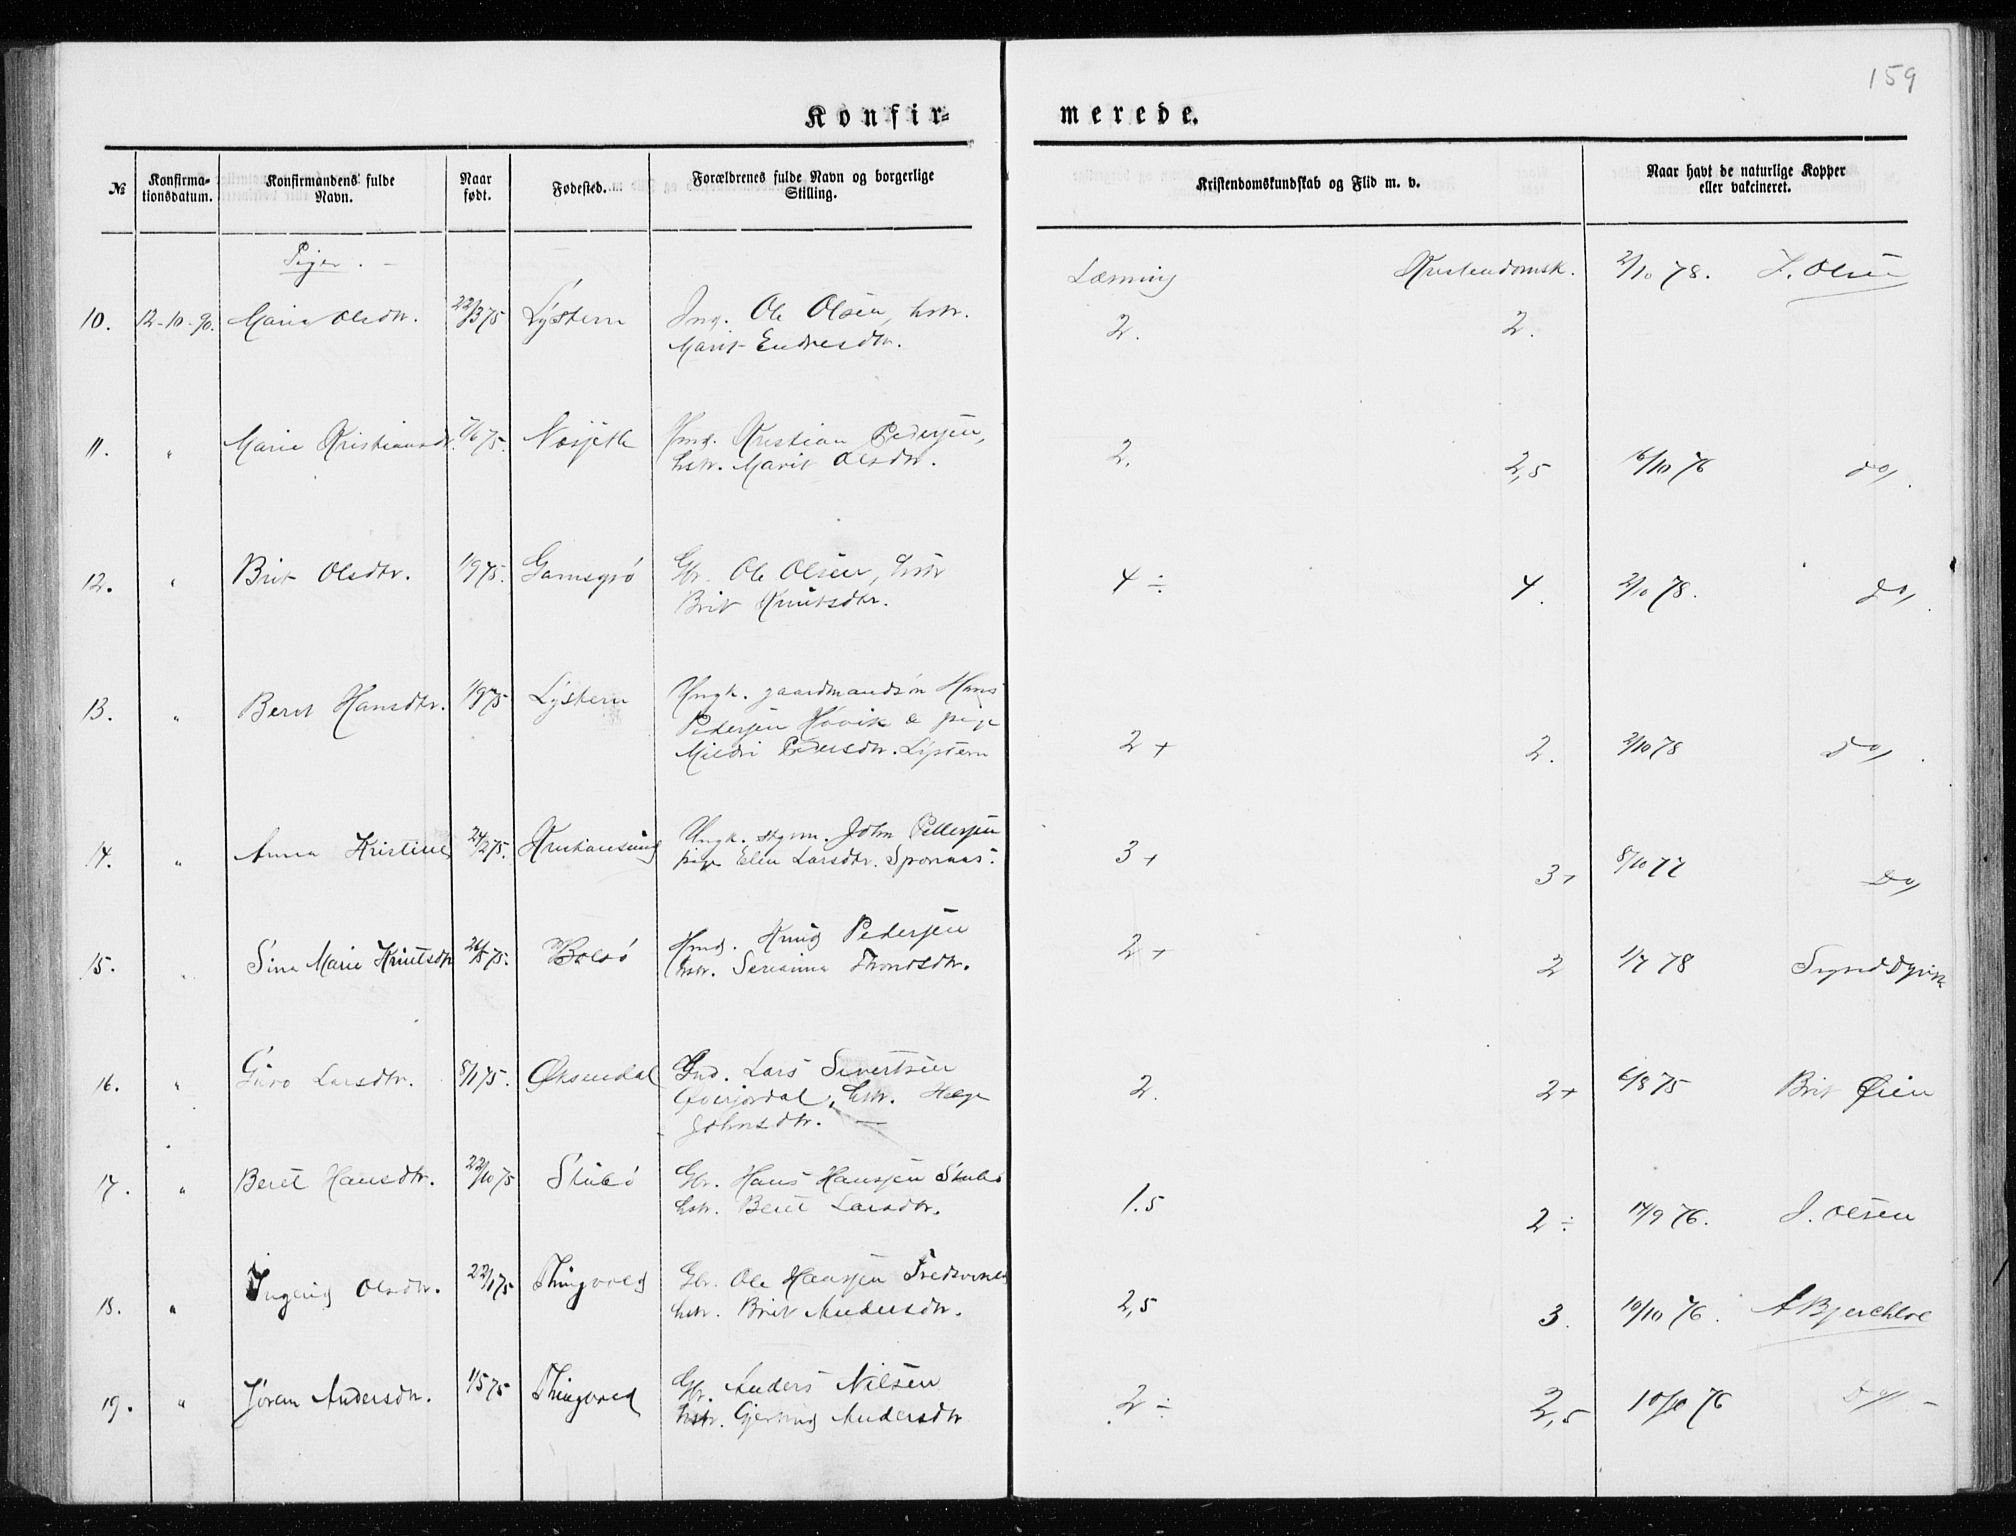 159
Konfir-
merede.
№
Konfirma-
tionsdatum.
Konfirmandens fulde
Navn.
Naar
født.
Fødested.
Forældrenes fulde Navn og borgerlige
Stilling.
Kristendomskundskab og Flid m. v.
Naar havt de naturlige Kopper
eller vakcineret.
Piger. -
Læsning Kristendomsk.
10. 12-10-90. Marie Olsdtr. 22/3 75 Lystern Ole Olsen, hstr. 2/10 78. Olsen
Marit Endresdtr. 2. 2.
11. " Marie Kristiansdtr. 7/6 75. Kristian Pedersen, 2.
hstr. Marit Olsdtr. 2,5 16/10 76 do,
12. " Brit Olsdtr. 1/9 75. Gbr. Ole Olsen, hstr 4 ÷ 4. 2/10 78. do,
Brit Knutsdtr.
13. " Beret Hansdtr. 1/9 75 Lystern Ungk. gaardmandsøn Hans
Pedersen Høvik & pige
Mildri Pedersdtr. Lystern 2 + 2. 2/10 78 do,
14. " Anna Kristine 24/2 75. Kristiansund Ungk. John Pettersen
pige Elen Larsdtr. 3 + 3 + 8/10 77 Do,
15. " Sina Marie Knutsdtr 26/5 75. Bolsø Knud Pedersen 2 +
hstr. Serianna Trondsdtr. 2 1/7 78 Dyrvik
16. " Guro Larsdtr. 8/1 75. Øksendal Lars Sivertsen
hstr. 2. 2 + 6/8 75 Brit Øien
Johnsdtr. —
17. " Beret Hansdtr. 22/10 75 Stubø Gbr. Hans Hansen Stubø
hstr. Beret Larsdtr. 1.5 2 ÷ 17/9 76. J. Olsen
18. " Ingerid Olsdtr. 22/1 75 Thingvold Gbr. Ole Hansen
hstr. Brit Andersdtr. 2,5 3. 10/10 76. A Bjerchloe
19. " Jøren Andersdtr. 1/5 75 Thingvold Gbr. Anders Nilsen
hstr. Gjertrud Andersdtr 2 ÷ 2,5 10/10 76 Do/ -